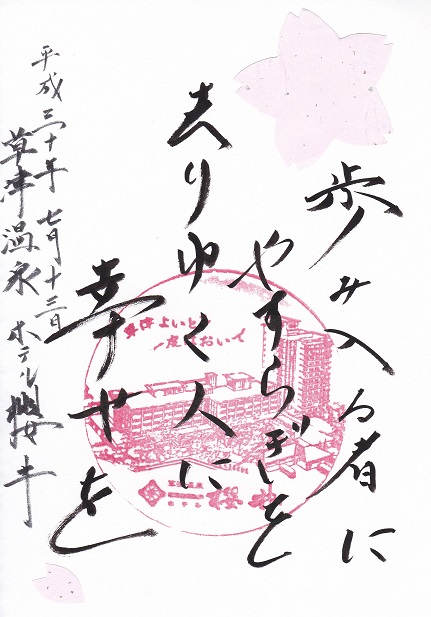 歩み入る者に
やすらぎを
去りゆく人に
幸せを
平成三十年 七月十三日
草津温泉 ホテル櫻井
草津よいとこ
一度はおいで
櫻井